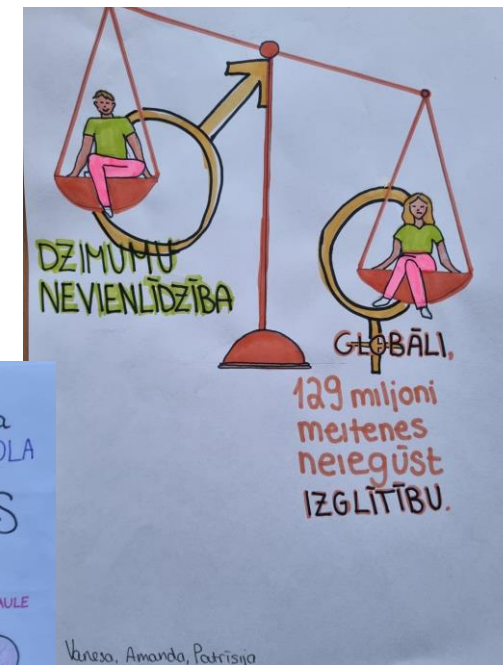 DZIMUMU
NEVIENLĪDZĪBA
GLOBĀLI,
129 miljoni
meitenes
neiegūst
IZGLĪTĪBU.
Vanesa, Amanda, Patrīsija
S